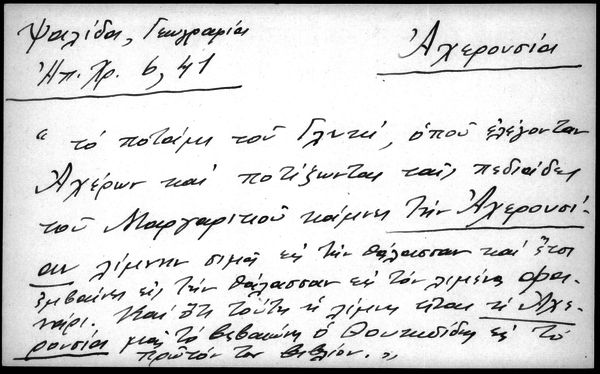 Ψαλίδα, Γεωγραφία
Ἠπ. Χρ. 6, 41
Ἀχερουσία
"τό ποτάμι τοῦ Γλυκύ, ὁποῦ ἐλέγονταν
Ἀχέρων καί ποτίζωντας ταῖς πεδιάδες
τοῦ Μαργαριτιοῦ κάμνει τήν Ἀχερουσί-
αν λίμνην σιμά εἰς τήν θάλασσαν καί ἔτσι
ἐμβαίνει εἰς τήν θάλασσαν εἰς τόν λιμένα φα-
νάρι. Καί ὅτι τούτη ἡ λίμνη εἶναι ἡ Ἀχε-
ρουσία μᾶς τό βεβαιώνει ὁ Θουκυδίδης εἰς τό
πρῶτόν του βιβλίον."